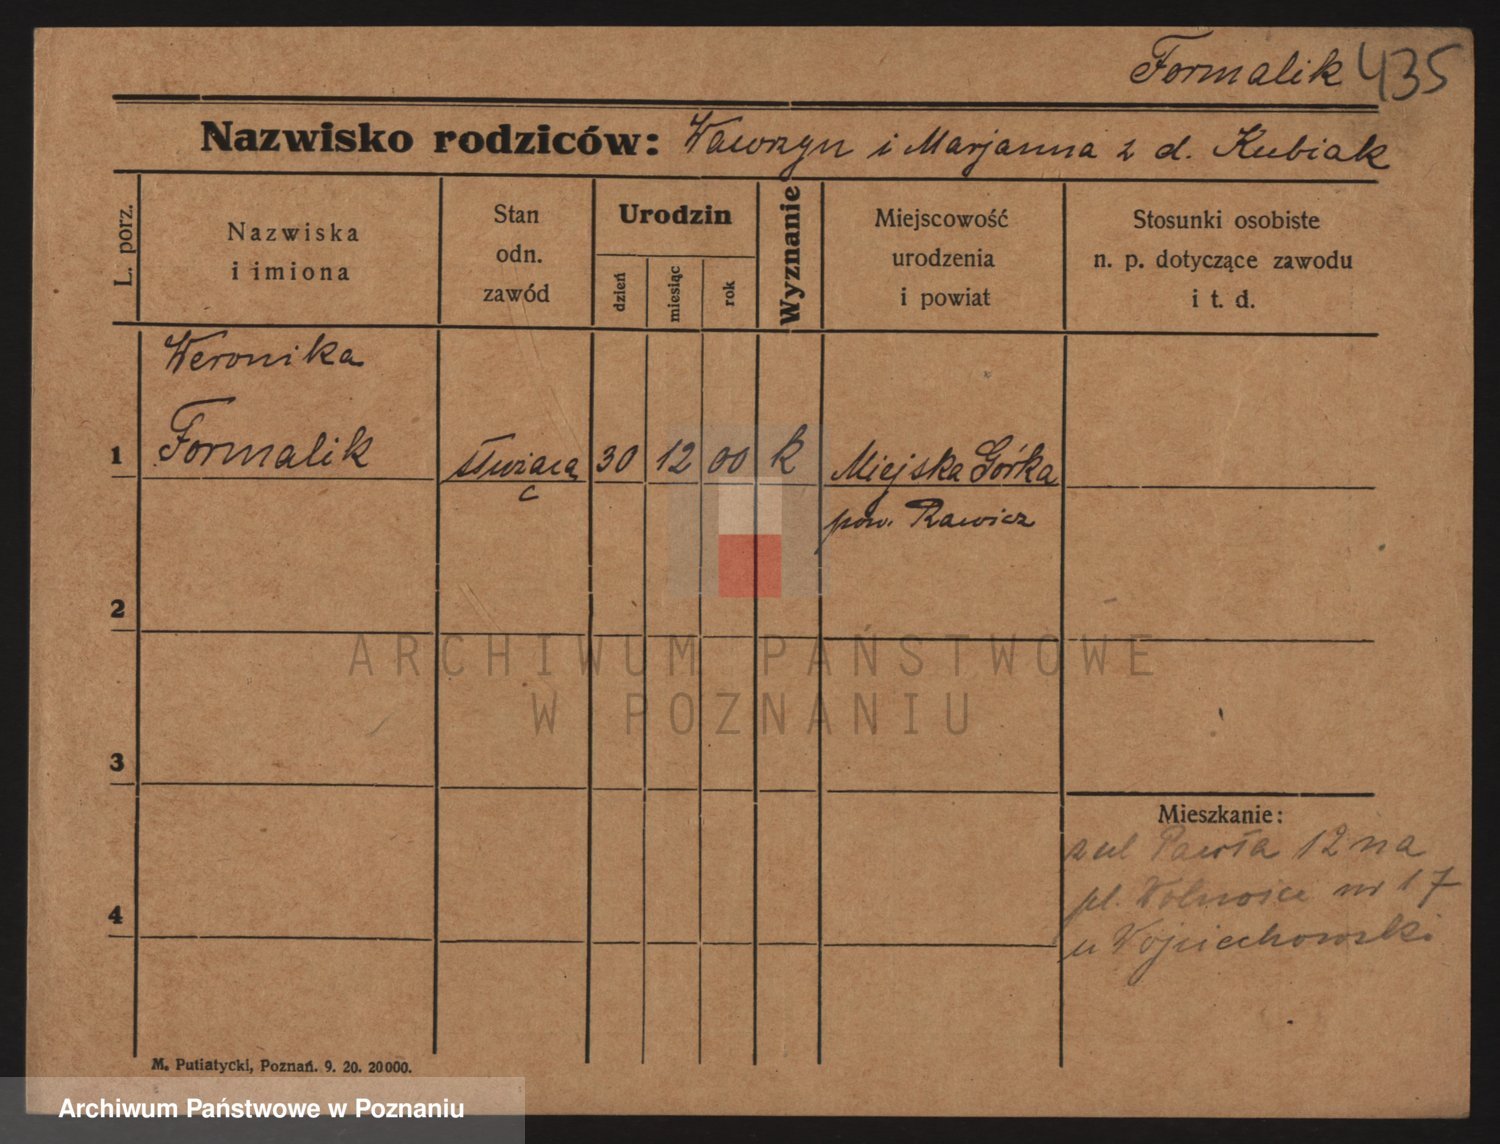 Formalik 435
Nazwisko rodziców: Wawrzyn i Marjanna z d. Kubiak
L. porz.
Nazwiska
i imiona
Stan
odn.
zawód
Urodzin
dzień
miesiąc
rok
Wyznanie
Miejscowość
urodzenia
i powiat
Stosunki osobiste
n. p. dotyczące zawodu
i t. d.
Weronika
1 Formalik służąca 30 12 00 k Miejska Górka
pow. Rawicz
2
ARCHIWUM PAŃSTWOWE
W POZNANIU
3
Mieszkanie:
z ul Pawła 12 na
pl. Wolności nr 17
u Wojciechowski
4
M. Putiatycki, Poznań. 9. 20. 20000.
Archiwum Państwowe w Poznaniu